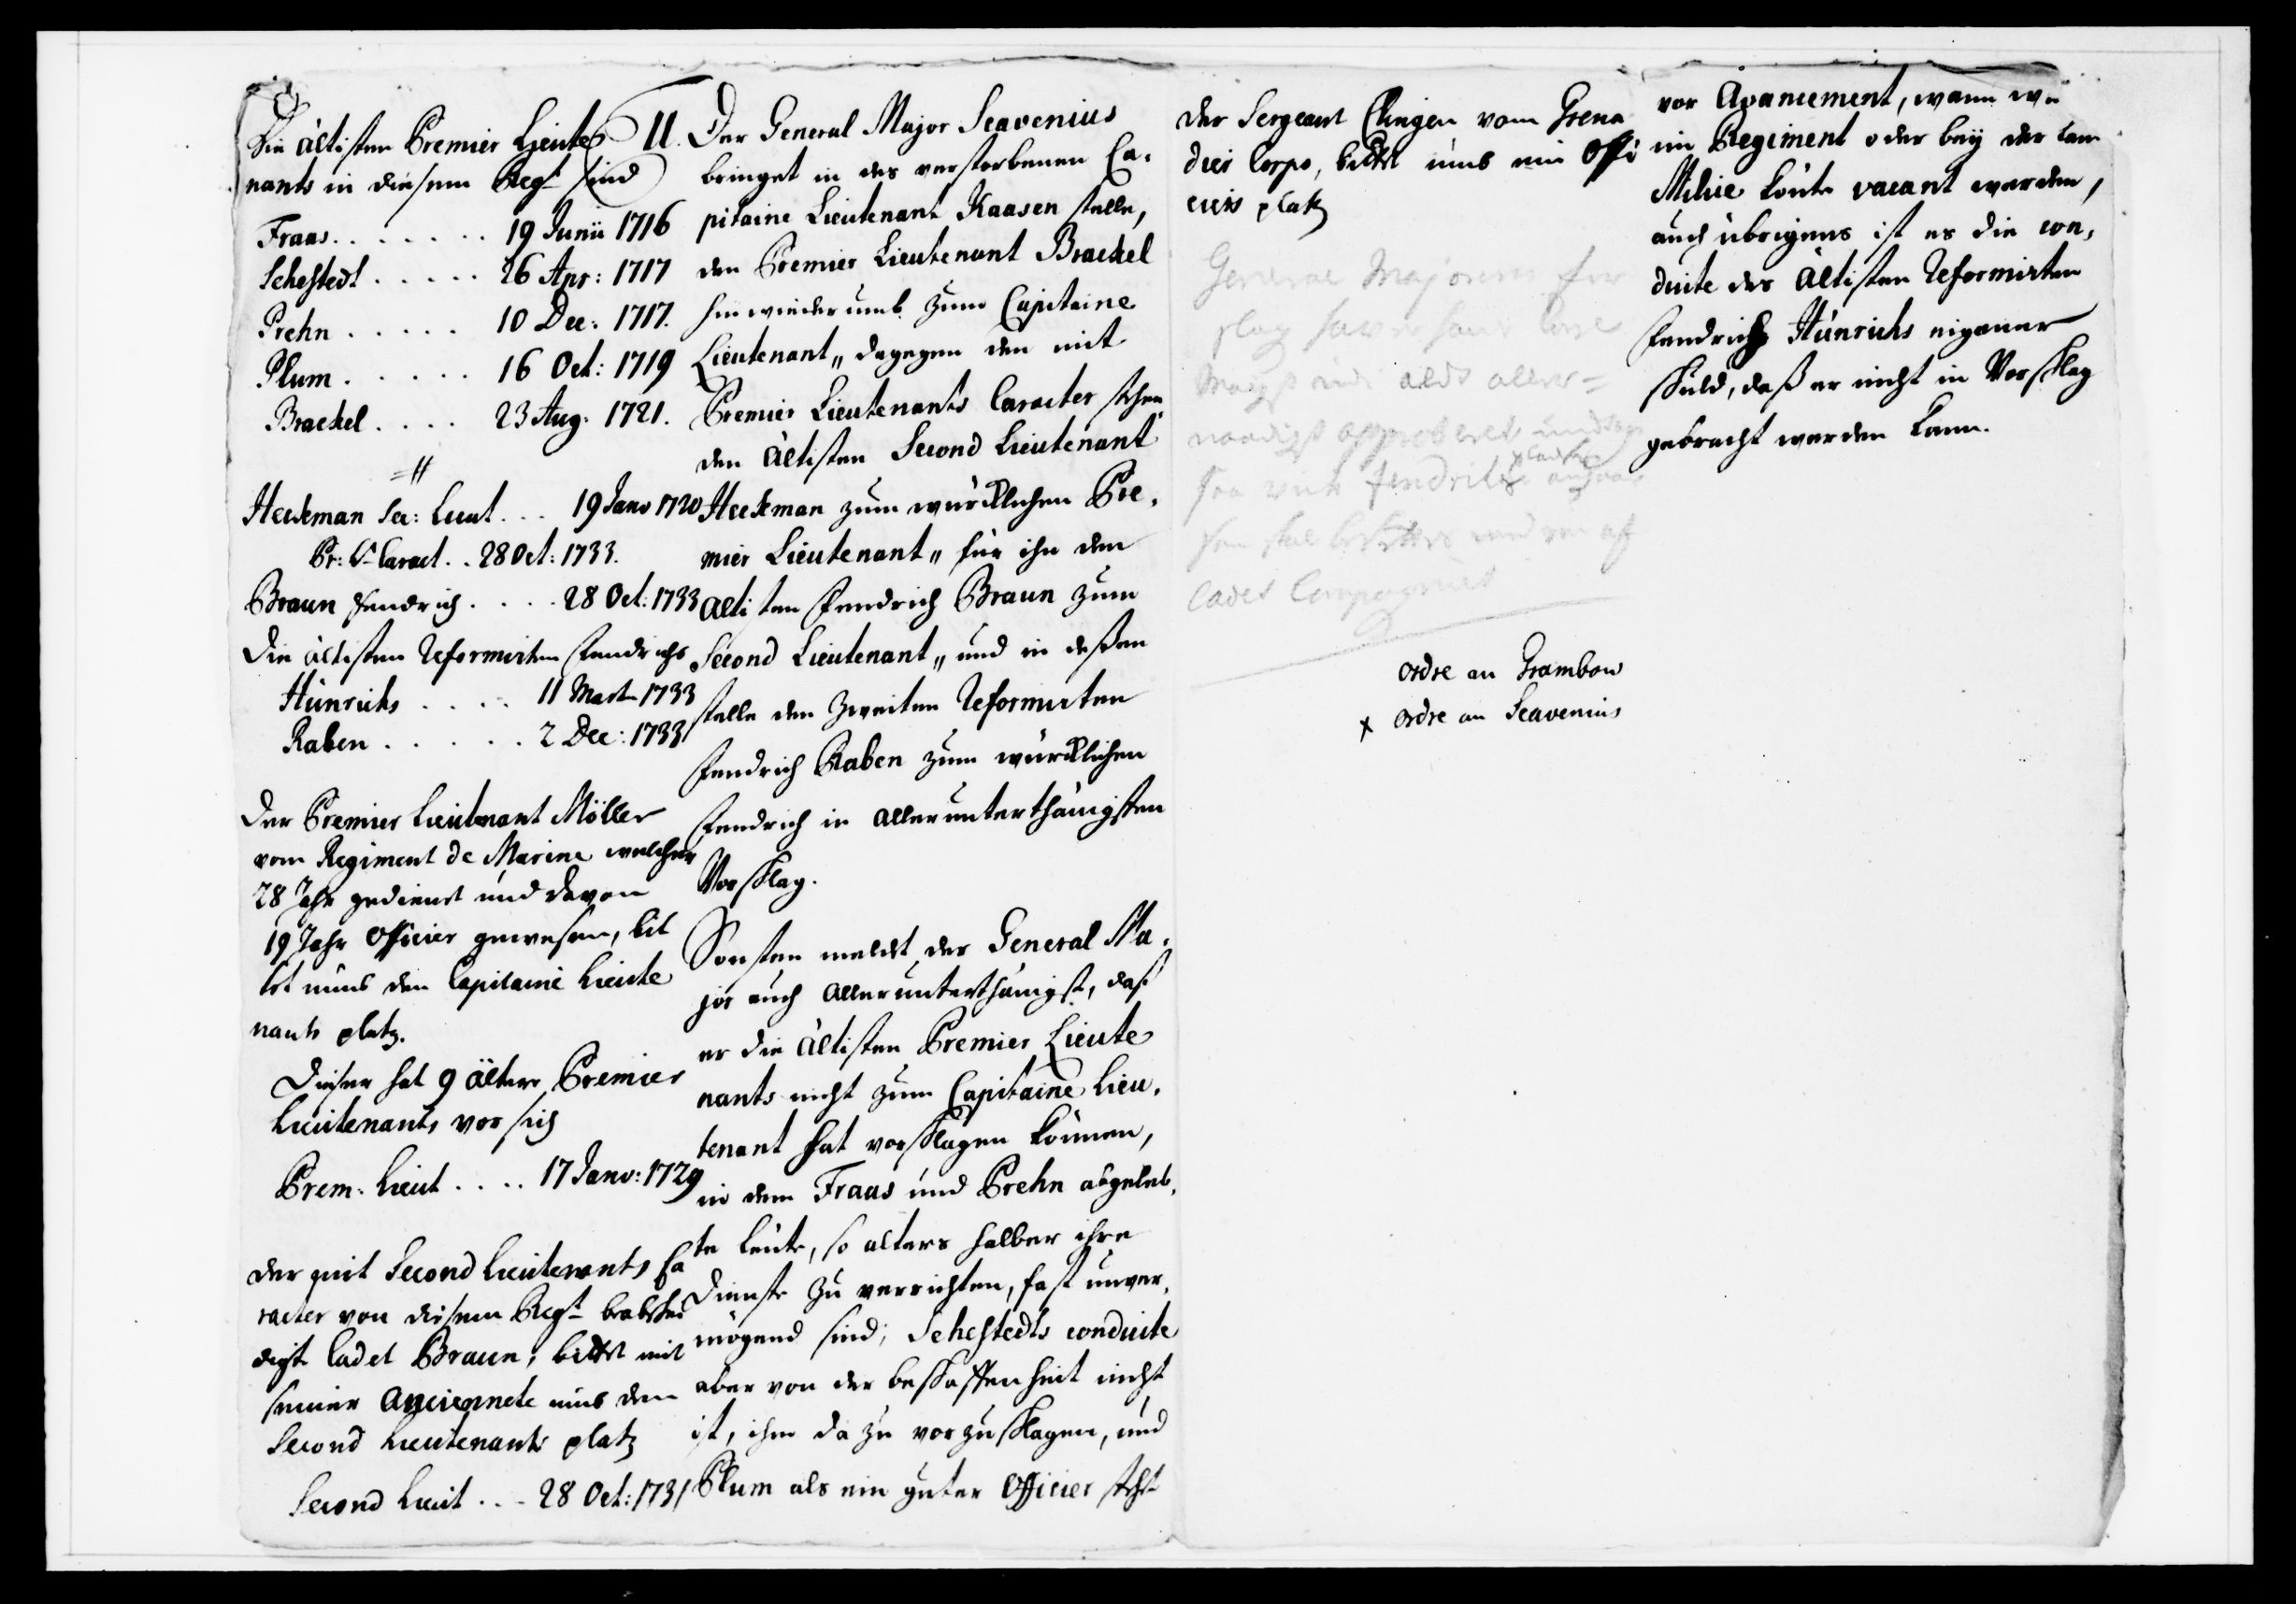 Die Ältisten Premier Lieute
nants in diesem Regt sind
Fraas . . . . . . . 19 Junii 1716
Sehestedt . . . . . 26 Apr: 1717
Prehn . . . . . 10 Dec: 1717.
Plum . . . . . 16 Oct: 1719
Brackel . . . . 23 Aug: 1721.
Heckman Sec: Lieut . . . 19 Janv 1720
Pr: Lt Caract . . 28 Oct: 1733.
Braun Fendrich . . . . 28 Oct: 1733
Die ältisten Reformirten Fendrichs
Hünrichs . . . . 11 Mart 1733
Raben . . . . . 2 Dec: 1733
Der Premier Lieutenant Möller
vom Regiment de Marine welcher
28 Jahr gedienet und davon
19 Jahr Officier gewesen, bit
tet umb den Capitaine Lieute
nants platz.
Dieser hat 9 ältere Premier
Lieutenants vor sich
Prem: Lieut . . . . 17 Janv: 1729
Der mit Second Lieutenants Ca
racter von diesem Regt beabschei
digte Cadet Braun, bittet mit
seiner Anciennete umb den
Second Lieutenants platz
Second Lieut . . . 28 Oct: 1731
II. Der General Major Scavenius
bringet in des verstorbenen Ca,
pitaine Lieutenant Kaasen stelle,
den Premier Lieutenant Brackel
hinwiederumb zum Capitaine
Lieutenant,, dagegen den mit
Premier Lieutenants Caracter stehen
den Ältisten Second Lieutenant
Heckman zum würcklichen Pre,
mier Lieutenant,, für ihn den
Ältisten Fendrich Braun zum
Second Lieutenant,, und in deßen
stelle den zweiten Reformirten
Fendrich Raben zum würcklichen
Fendrich in Allerunterthänigsten
Vorschlag.
Sonsten meldet der General Ma,
jor auch Allerunterthänigst, daß
er die Ältisten Premier Lieute
nants nicht zum Capitaine Lieu,
tenant hat vorschlagen können,
in dem Fraas und Prehn abgeleb,
te Leute, so alters halber ihre
Dienste zu verrichten, fast unver,
mögend sind; Sehestedts conduite
aber von der beschaffenheit nicht
ist, ihm da zu vorzuschlagen, und
Plum als ein guter Officier steht
Der Sergeant Clingen vom Grena
dier Corps, bittet umb ein Offi
ciers platz
General Majorens for
slag
allernaadigst approberet
Cadet Compagniet
ordre an Grambow
x ordre an Scavenius
vor Avancement, wann wo
im Regiment oder bey der Lan
Milice könte vacant werden,
auch übrigens ist es die con,
duite des Ältisten Reformirten
Fendrichs Hünrichs eigener
Schuld, daß er nicht in Vorschlag
gebracht werden kann.